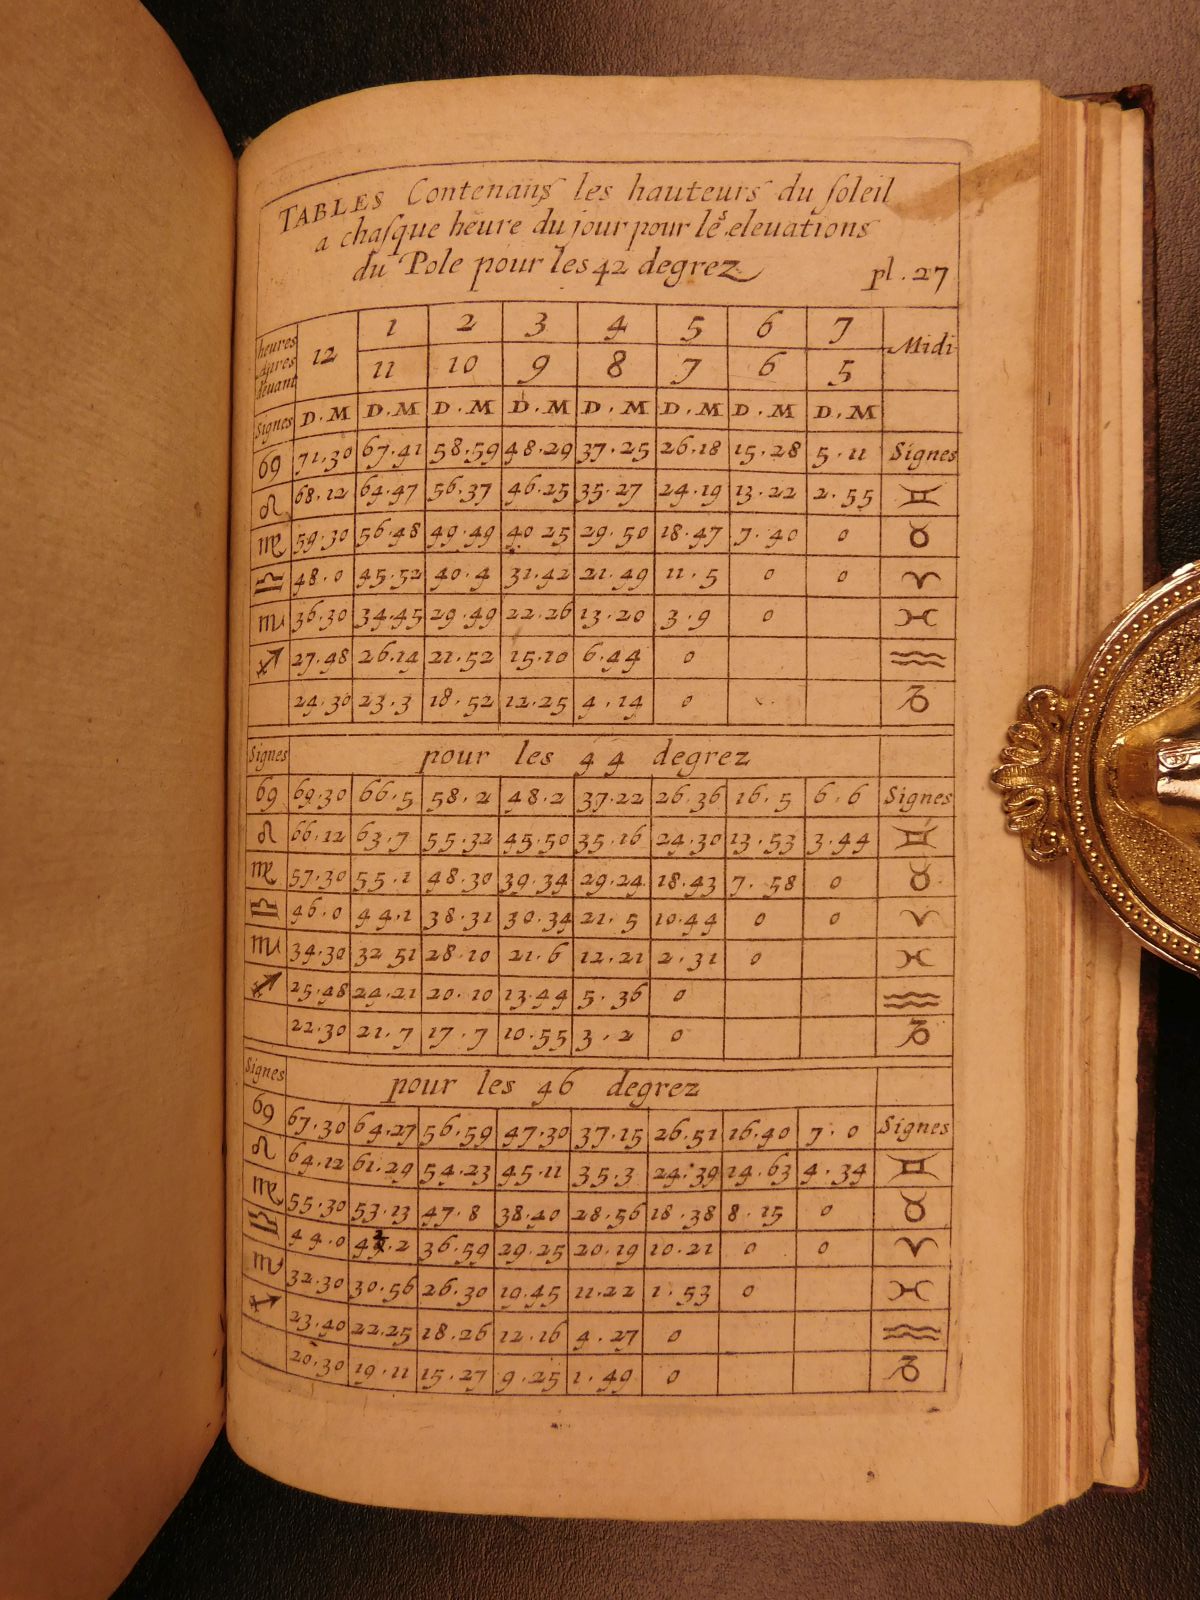 TABLES Contenans les hauteurs du ſoleil
a chaſque heure du jour pour les eleuations
du Pole pour les 42 degrez pl. 27
heures apres deuant 12 1 2 3 4 5 6 7 Midi
11 10 9 8 7 6 5
Signes D.M D.M D.M D.M D.M D.M D.M D.M
♋ 71.30 67.41 58.59 48.29 37.25 26.18 15.28 5.11 Signes
♌ 68.12 64.47 56.37 46.25 35.27 24.19 13.22 2.55 ♊
♍ 59.30 56.48 49.49 40 25 29.50 18.47 7.40 0 ♉
♎ 48.0 45.52 40.4 31.42 21.49 11.5 0 0 ♈
♏ 36.30 34.45 29.49 22.26 13.20 3.9 0 ♓
♐ 27.48 26.14 21.52 15.10 6.44 0 ♒
24.30 23.3 18.52 12.25 4.14 0 ♑
Signes pour les 44 degrez
♋ 69.30 66.5 58.2 48.2 37.22 26.36 16.5 6.6 Signes
♌ 66.12 63.7 55.32 45.50 35.16 24.30 13.53 3.44 ♊
♍ 57.30 55.1 48.30 39.34 29.24 18.43 7.58 0 ♉
♎ 46.0 44.1 38.31 30.34 21.5 10.44 0 0 ♈
♏ 34.30 32 51 28.10 21.6 12.21 2.31 0 ♓
♐ 25.48 24.21 20.10 13.44 5.36 0 ♒
22.30 21.7 17.7 10.55 3.2 0 ♑
Signes pour les 46 degrez
♋ 67.30 64.27 56.59 47.30 37.15 26.51 16.40 7.0 Signes
♌ 64.12 61.29 54.23 45.11 35.3 24.39 14.63 4.34 ♊
♍ 55.30 53.13 47.8 38.40 28.56 18.38 8.15 0 ♉
♎ 44.0 42.2 36.59 29.25 20.19 10.21 0 0 ♈
♏ 32.30 30.56 26.30 19.45 11.22 1.53 0 ♓
♐ 23.40 22.25 18.26 12.16 4.27 0 ♒
20.30 19.11 15.27 9.25 1.49 0 ♑